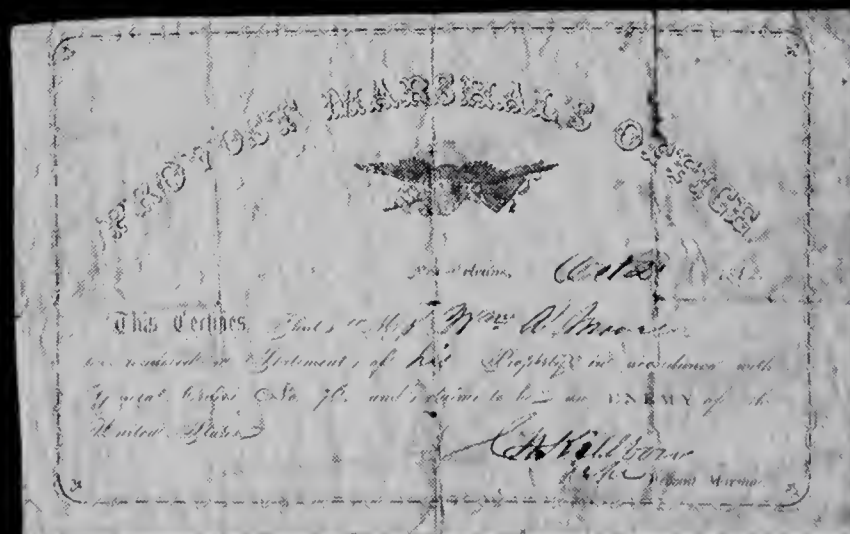 PROVOST MARSHAL'S OFFICE.
New Orleans, 1862
This Certifies, That Wm A.
has rendered a Statement of his Property in accordance with
General Order No. 76, and claims to be an ENEMY of the
United States
Provost Marshal